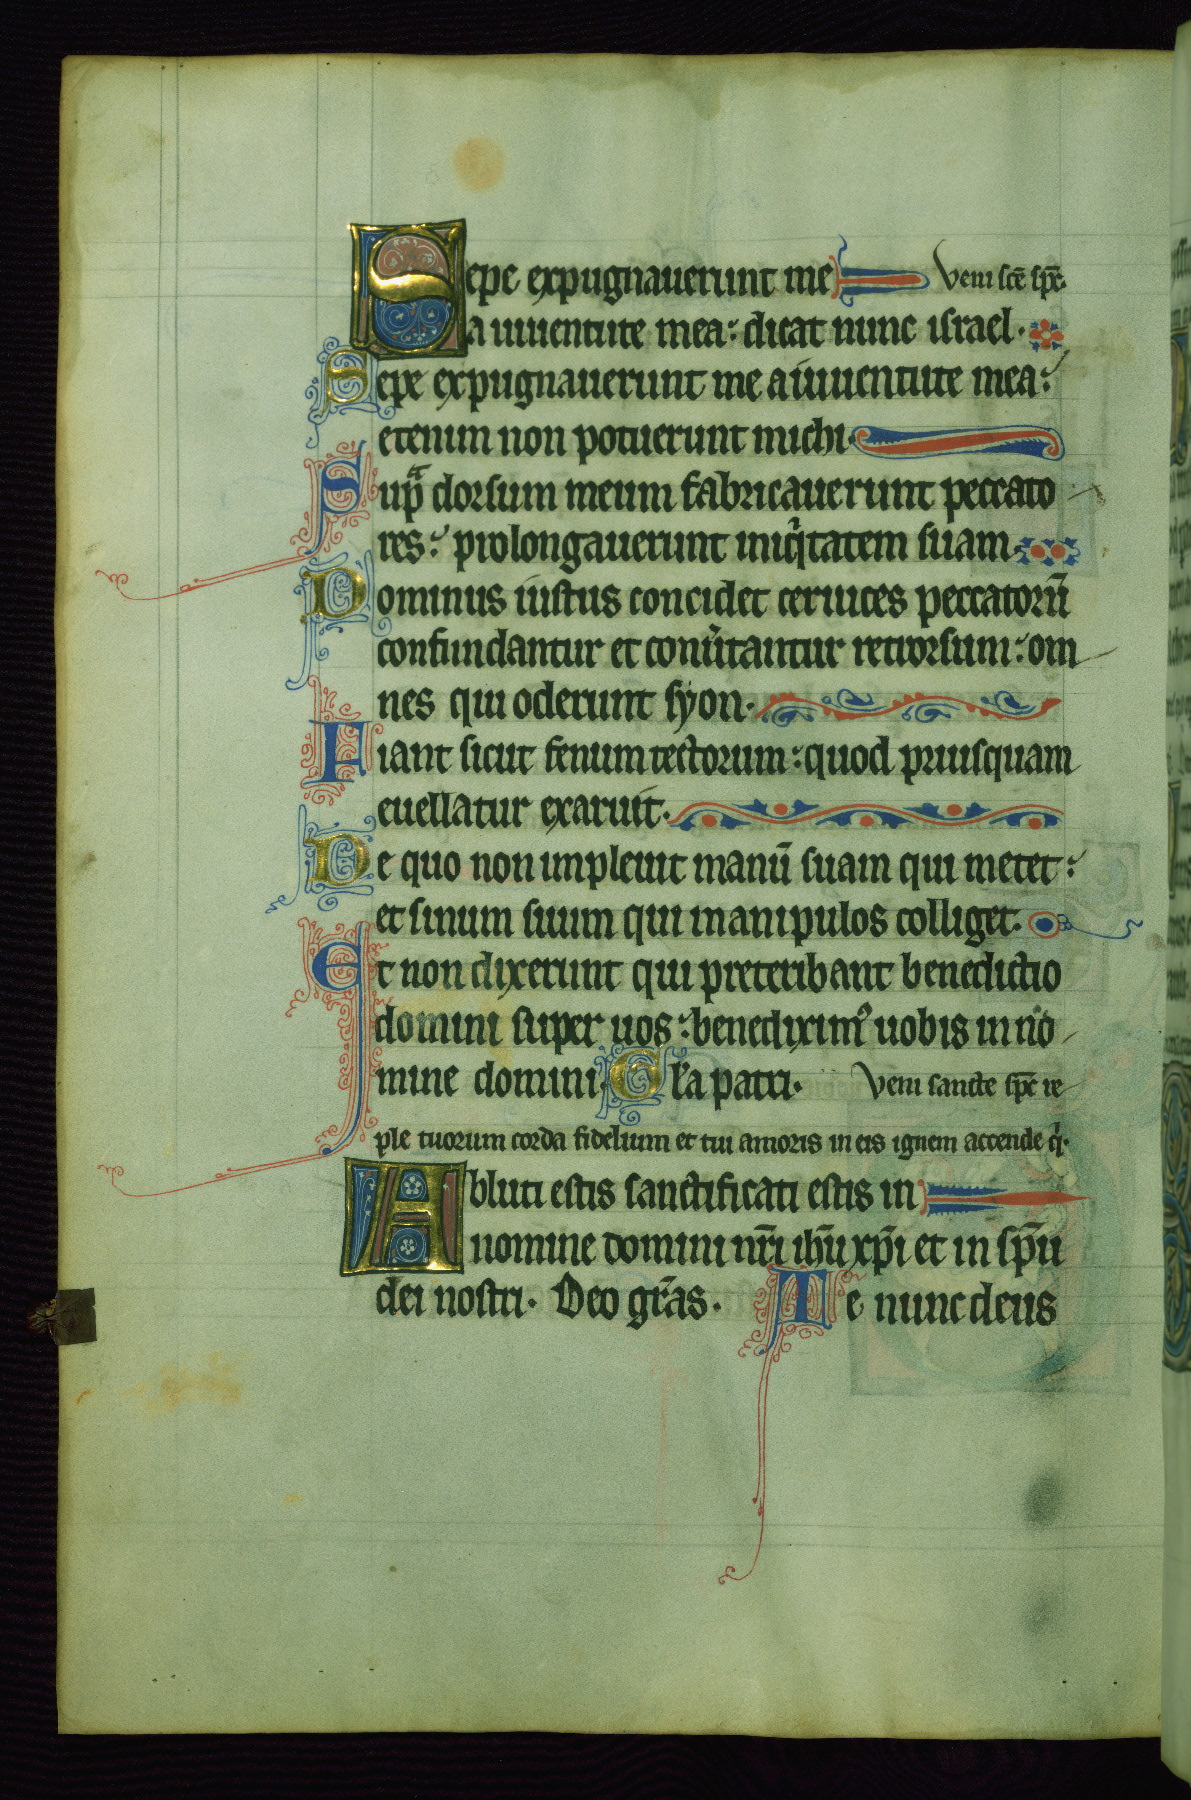 Sepe expugnauerunt me Veni scē spē.
a iuuentute mea: dicat nunc israel.
Sepe expugnauerunt me a iuuentute mea:
etenim non potuerunt michi.
Supᵃ dorsum meum fabricauerunt peccato
res: prolongauerunt iniqͥtatem suam.
Dominus iustus concidet ceruices peccatorū
confundantur et conũtantur retrorsum: om
nes qui oderunt syon.
Fiant sicut fenum tectorum: quod priusquam
euellatur exaruit.
De quo non impleuit manū suam qui metet:
et sinum suum qui manipulos colliget.
Et non dixerunt qui preteribant benedictio
domini super uos: benediximꝰ uobis in no
mine domini. Gl̃a patri. Veni sancte spē re
ple tuorum corda fidelium et tui amoris in eis ignem accende qͥ.
Abluti estis sanctificati estis in
nomine domini nr̄i ihū xp̄i et in sp̄u
dei nostri. Deo gr̄as. Te nunc deus